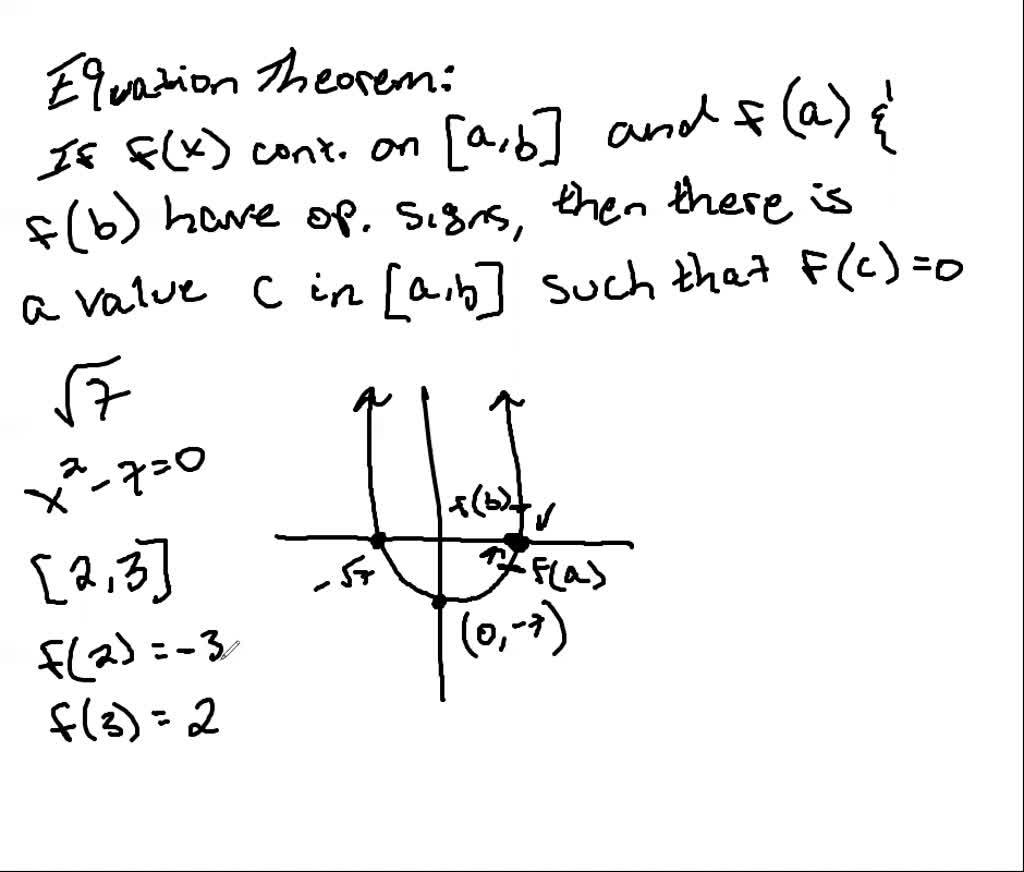 Equation Theorem:
If f(x) cont. on [a,b] and f(a) &
f(b) have op. signs, then there is
a value c in [a,b] such that f(c)=0
√7
x²-7=0
[2,3]
f(2)=-3
f(3)=2
f(b)
f(a)
-√7
(0,-7)